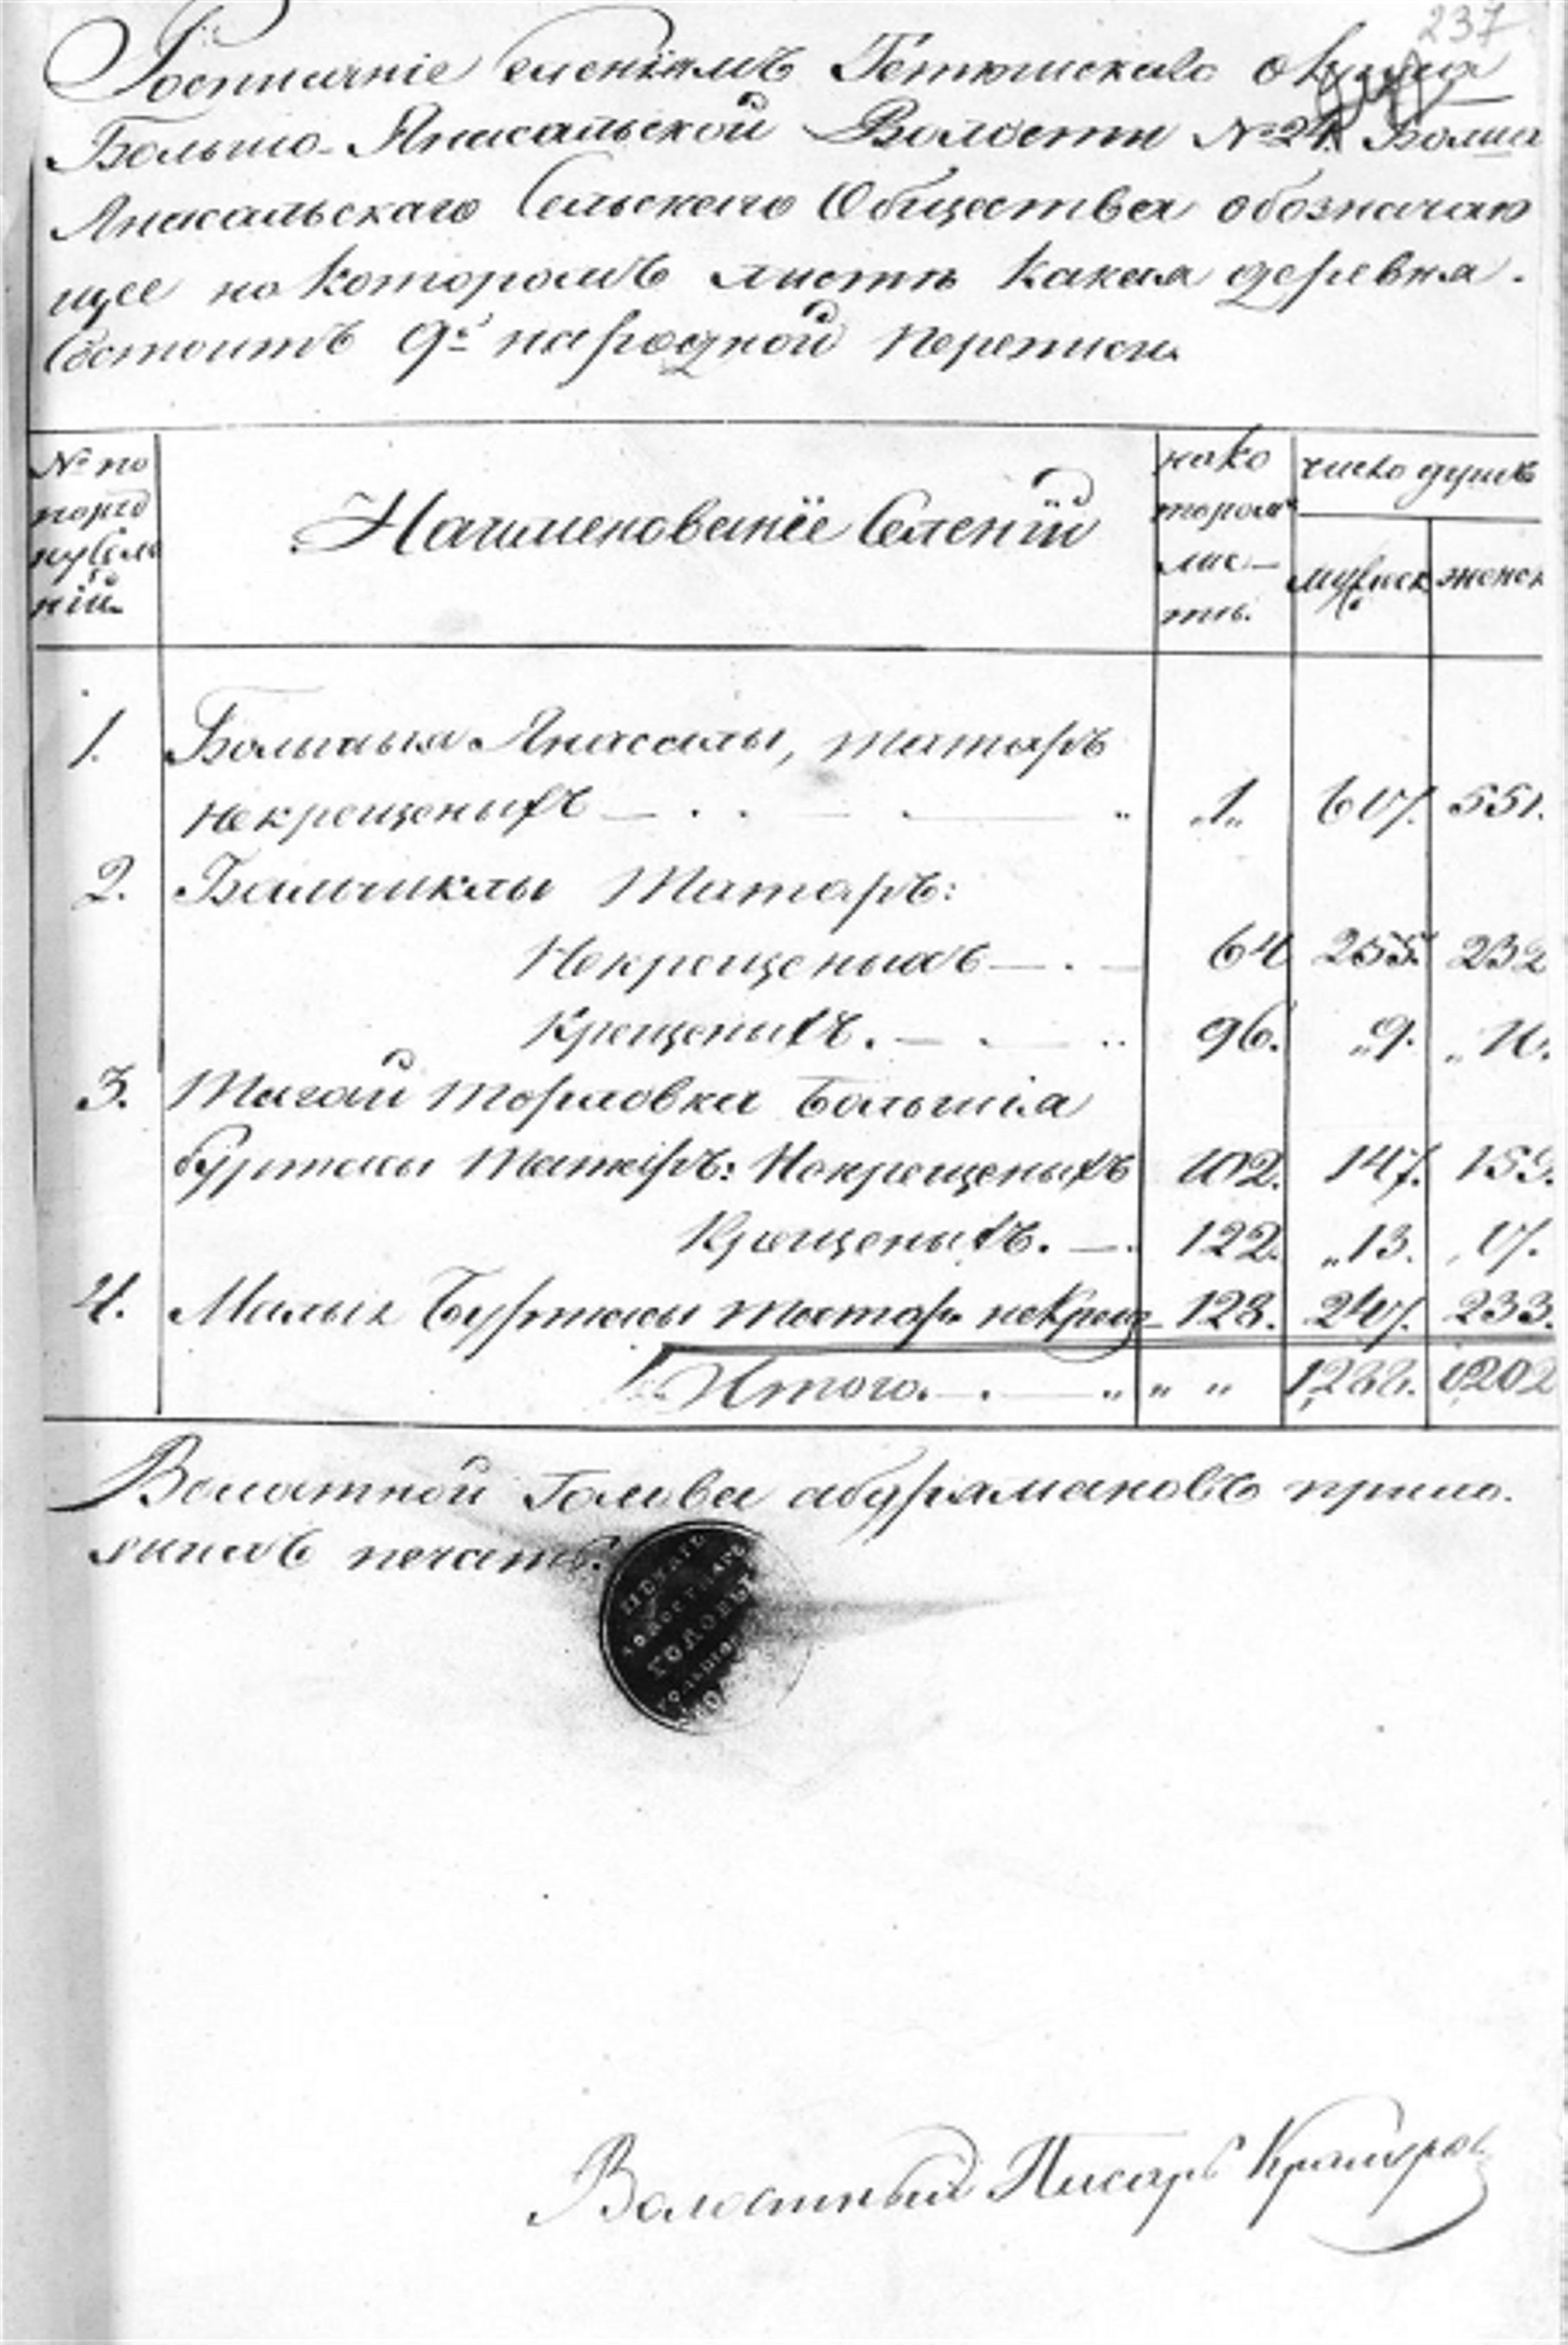 237
Росписаніе селеніямъ Тетюшскаго округа
Больше-Янасальской Волости № 24. Больше
Янасальскаго Сельскаго Общества обозначаю
щее на которомъ листѣ какая деревня
состоитъ 9й народной переписи
№ по порядку селеній
Наименованіе Селеній
на которомъ листѣ.
число душъ
мужеск женск
1. Большыя Янассалы, татаръ
некрещеныхъ — „1„ 607. 551.
2. Бальчиклы Татаръ:
Некрещеныхъ — 64 255. 232
Крещеныхъ. — 96. „9. „10.
3. Тагай Торловка Большія
буртасы Татаръ: Некрещеныхъ 102. 147. 159.
Крещеныхъ. — 122. „13. „17.
4. Малыя Буртасы татар. некрещ 128. 247. 233.
Итого. — „ „ „ 1288. 1202
Волостной Голова абдрахмановъ прило.
жилъ печать.
ГОЛОВЫ
Волостный Писарь